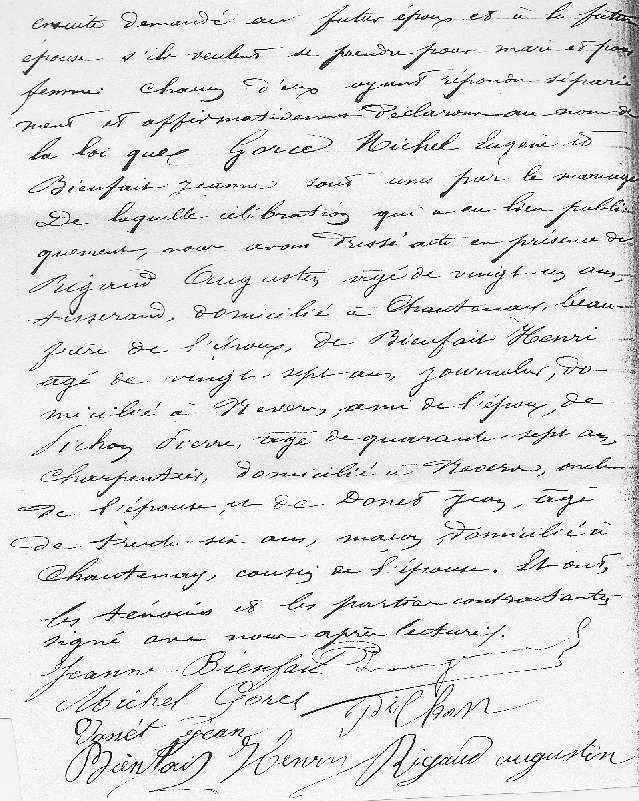 ensuite demandé au futur époux et à la future
épouse s'ils veulent se prendre pour mari et pour
femme chacun d'eux ayant répondu séparé
ment et affirmativement déclarons au nom de
la loi que Gorce Michel Eugène et
Bienfait Jeanne sont unis par le mariage
De laquelle célébration qui a eu lieu publi
quement, nous avons dressé acte en présence de
Rigaud Augustin âgé de vingt un ans,
tisserand, domicilié à Chantenay, beau-
frère de l'époux, de Bienfait Henri
âgé de vingt-sept ans, journalier, do-
micilié à Nevers, ami de l'époux, de
Pichon Pierre, âgé de quarante-sept ans,
charpentier, domicilié à Nevers, oncle
de l'épouse, et de Donet Jean, âgé
de trente-six ans, maçon, domicilié à
Chantenay, cousin de l'épouse. Et ont,
les témoins et les parties contractantes
signé avec nous après lecture.
Jeanne Bienfait
Michel Gorce Pichon
Donét Jean
Bienfait Henry Rigaud augustin